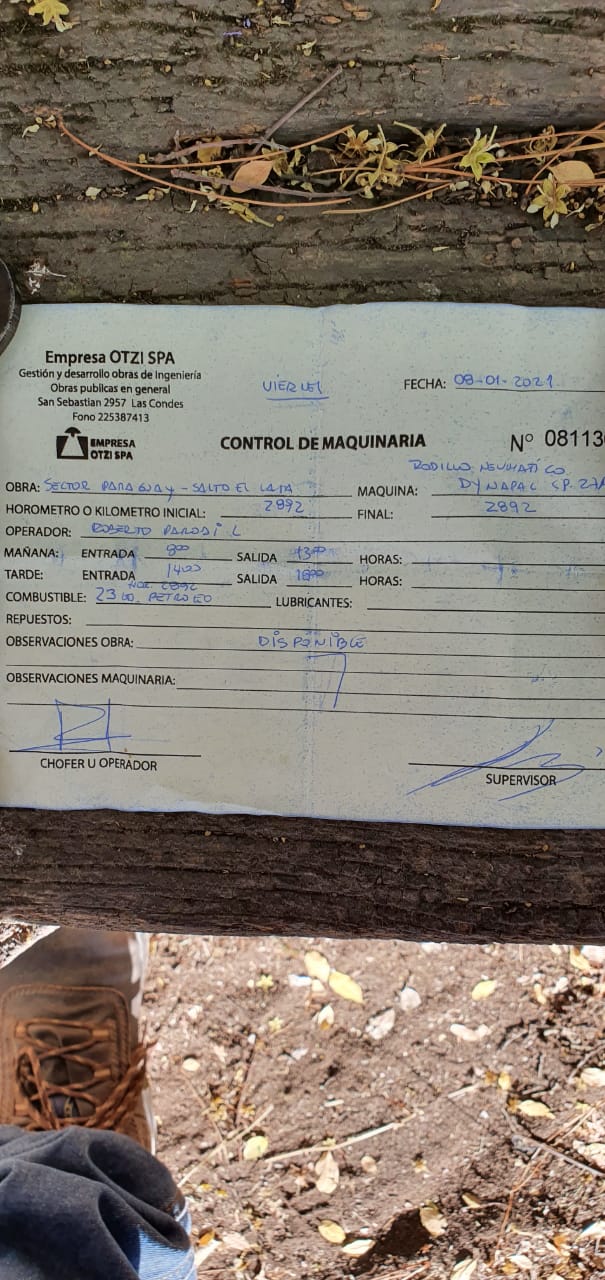 Empresa OTZI SPA
Gestión y desarrollo obras de Ingeniería
Obras publicas en general
San Sebastian 2957 Las Condes
Fono 225387413
EMPRESA
OTZI SPA
VIERNES
FECHA: 08-01-2021
CONTROL DE MAQUINARIA
Nº 08113
OBRA: SECTOR PARAGUAY - SALTO EL LAJA
MAQUINA: RODILLO NEUMATICO
DYNAPAC CP.
HOROMETRO O KILOMETRO INICIAL: 2892 FINAL: 2892
OPERADOR: ROBERTO PARODI L
MAÑANA: ENTRADA 8:00 SALIDA 13:00 HORAS:
TARDE: ENTRADA 14:00 SALIDA 18:00 HORAS:
HOR. 2892
COMBUSTIBLE: 23 PETROLEO LUBRICANTES:
REPUESTOS:
OBSERVACIONES OBRA: DISPONIBLE
OBSERVACIONES MAQUINARIA:
CHOFER U OPERADOR
SUPERVISOR